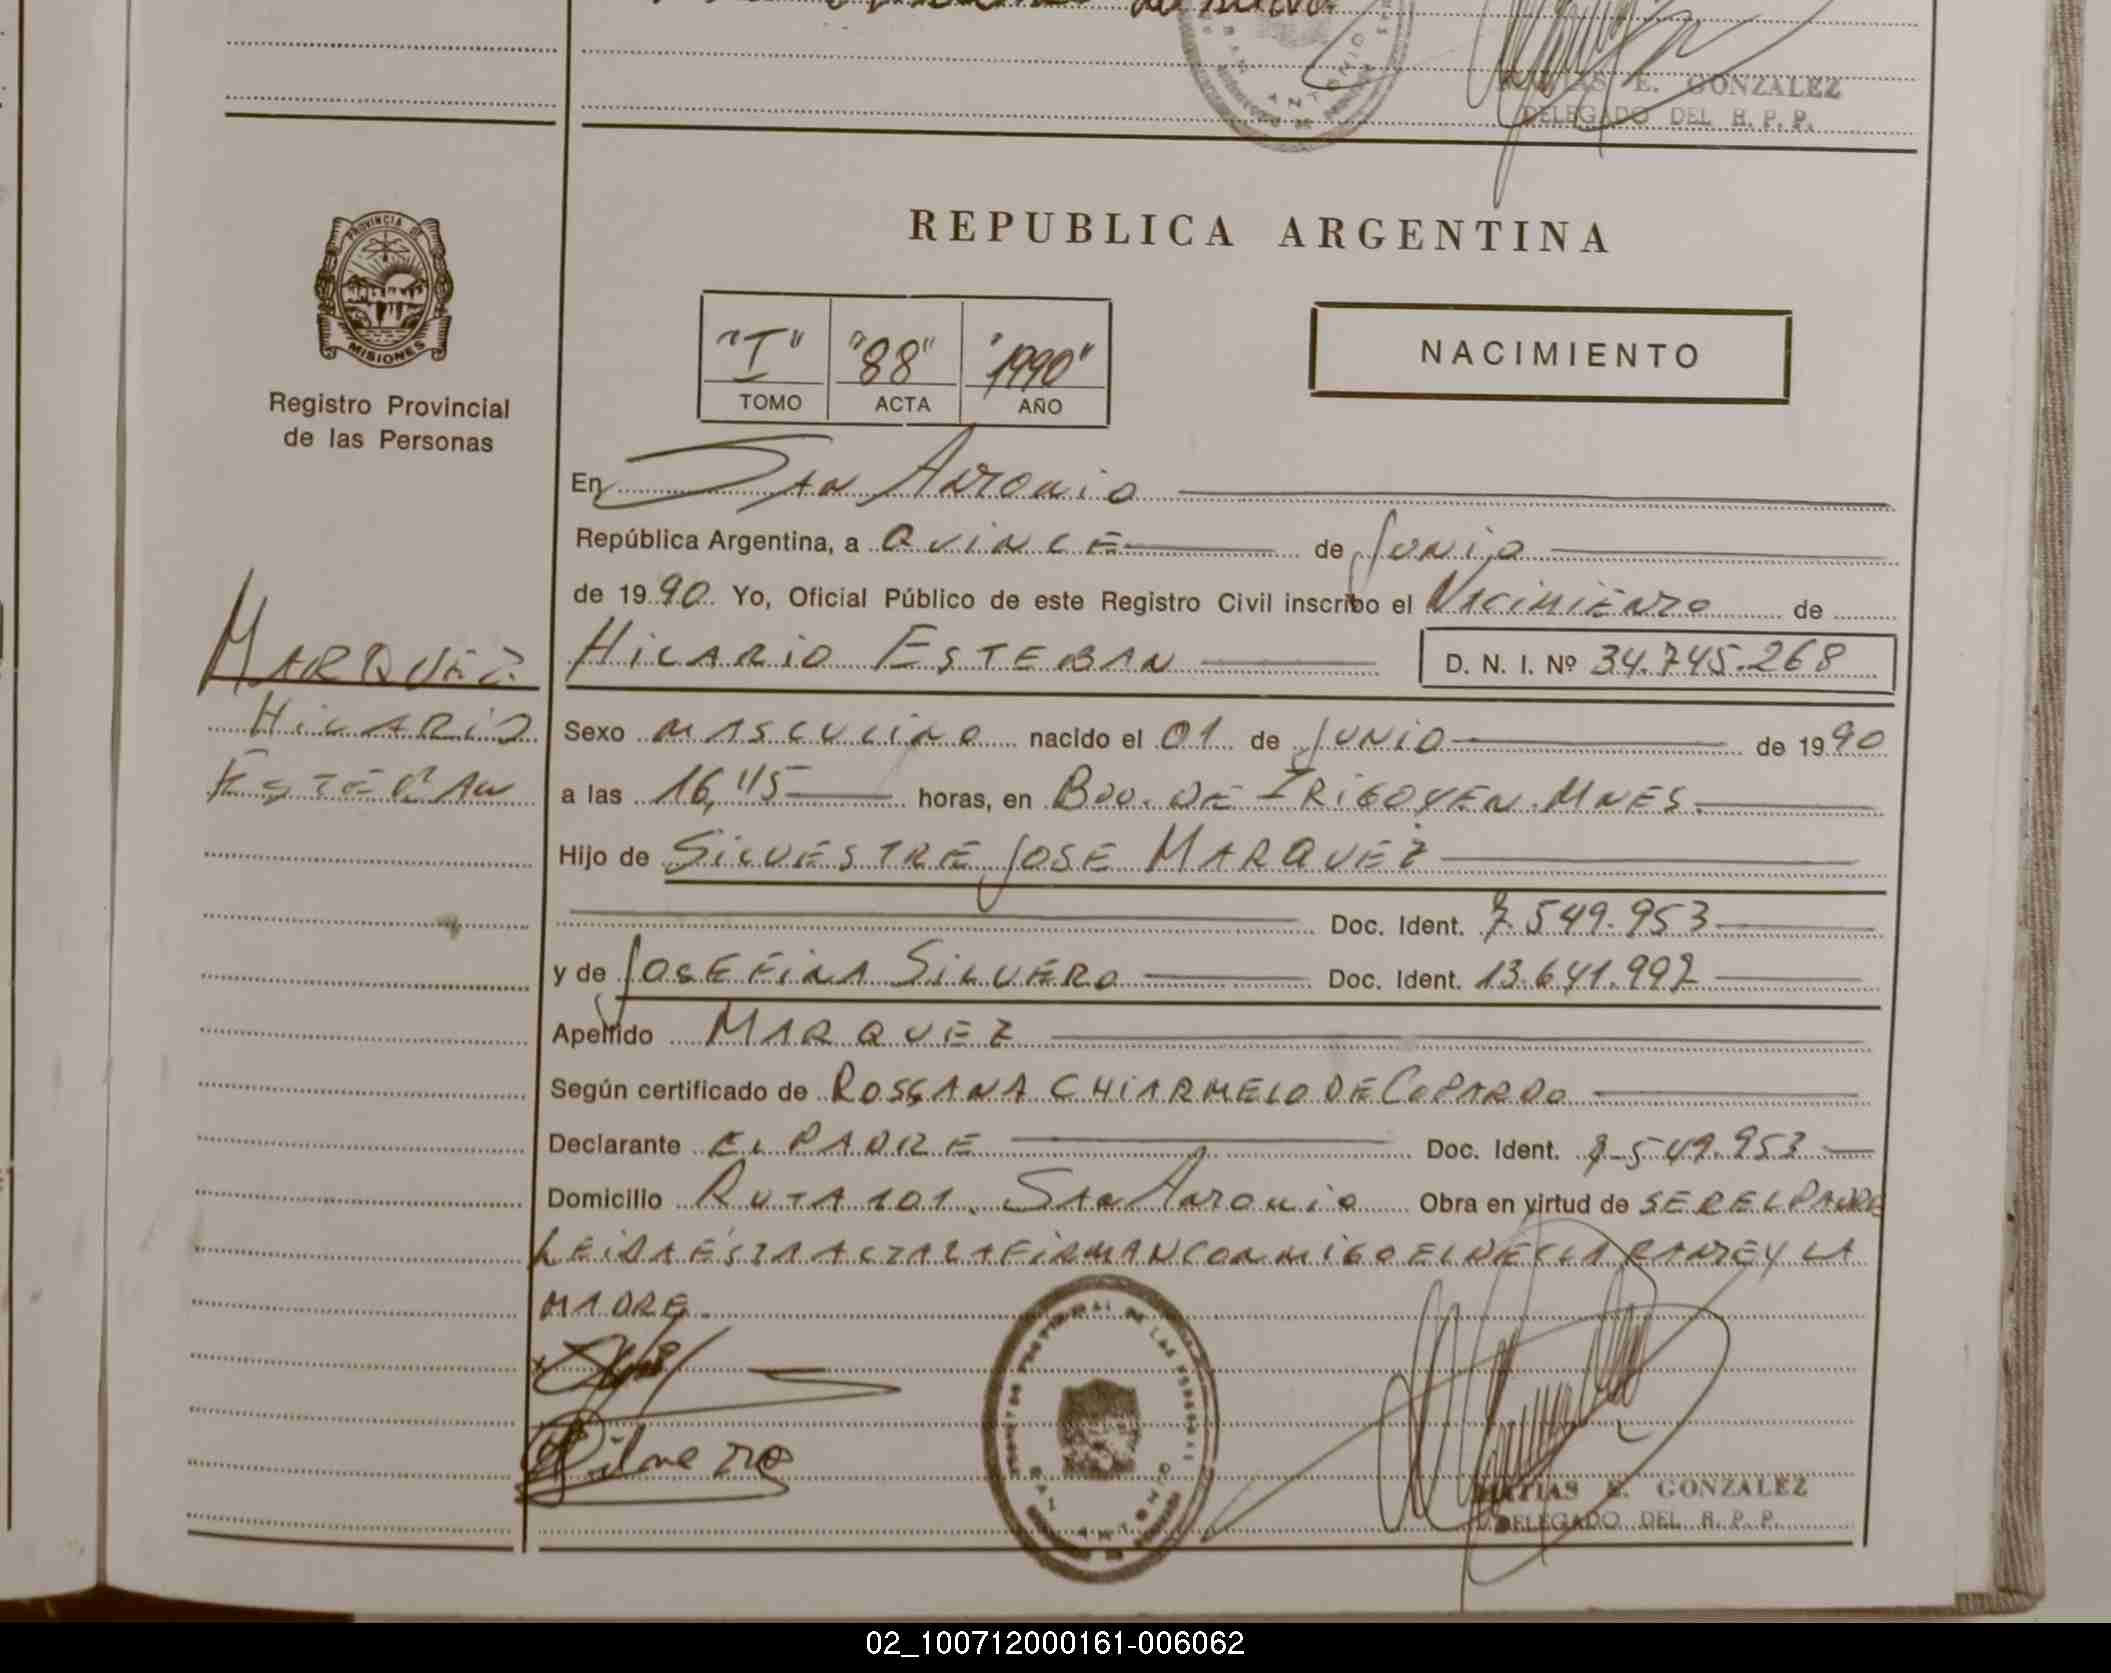 E. GONZALEZ
DELEGADO DEL R. P. P.
PROVINCIA DE
MISIONES
Registro Provincial
de las Personas
REPUBLICA ARGENTINA
"I" "88" "1990"
TOMO ACTA AÑO
NACIMIENTO
En San Antonio
República Argentina, a QUINCE de Junio
de 1990. Yo, Oficial Público de este Registro Civil inscribo el NACIMIENTO de
MARQUEZ
HILARIO ESTEBAN D. N. I. Nº 34.745.268
HILARIO
ESTEBAN
Sexo MASCULINO nacido el 01 de JUNIO de 1990
a las 16,45 horas, en BDO. DE IRIGOYEN. MNES.
Hijo de SILVESTRE JOSE MARQUEZ
Doc. Ident. 7.549.953
y de JOSEFINA SILVERO Doc. Ident. 13.641.997
Apellido MARQUEZ
Según certificado de ROSSANA CHIARMELO DE COPARDO
Declarante EL PADRE Doc. Ident. 7.549.953
Domicilio RUTA 101. San Antonio Obra en virtud de SER EL PADRE
LEIDA ÉSTA ACTA LA FIRMAN CONMIGO EL DECLARANTE Y LA
MADRE.
SAN ANTONIO
MATIAS E. GONZALEZ
DELEGADO DEL R. P. P.
02_100712000161-006062